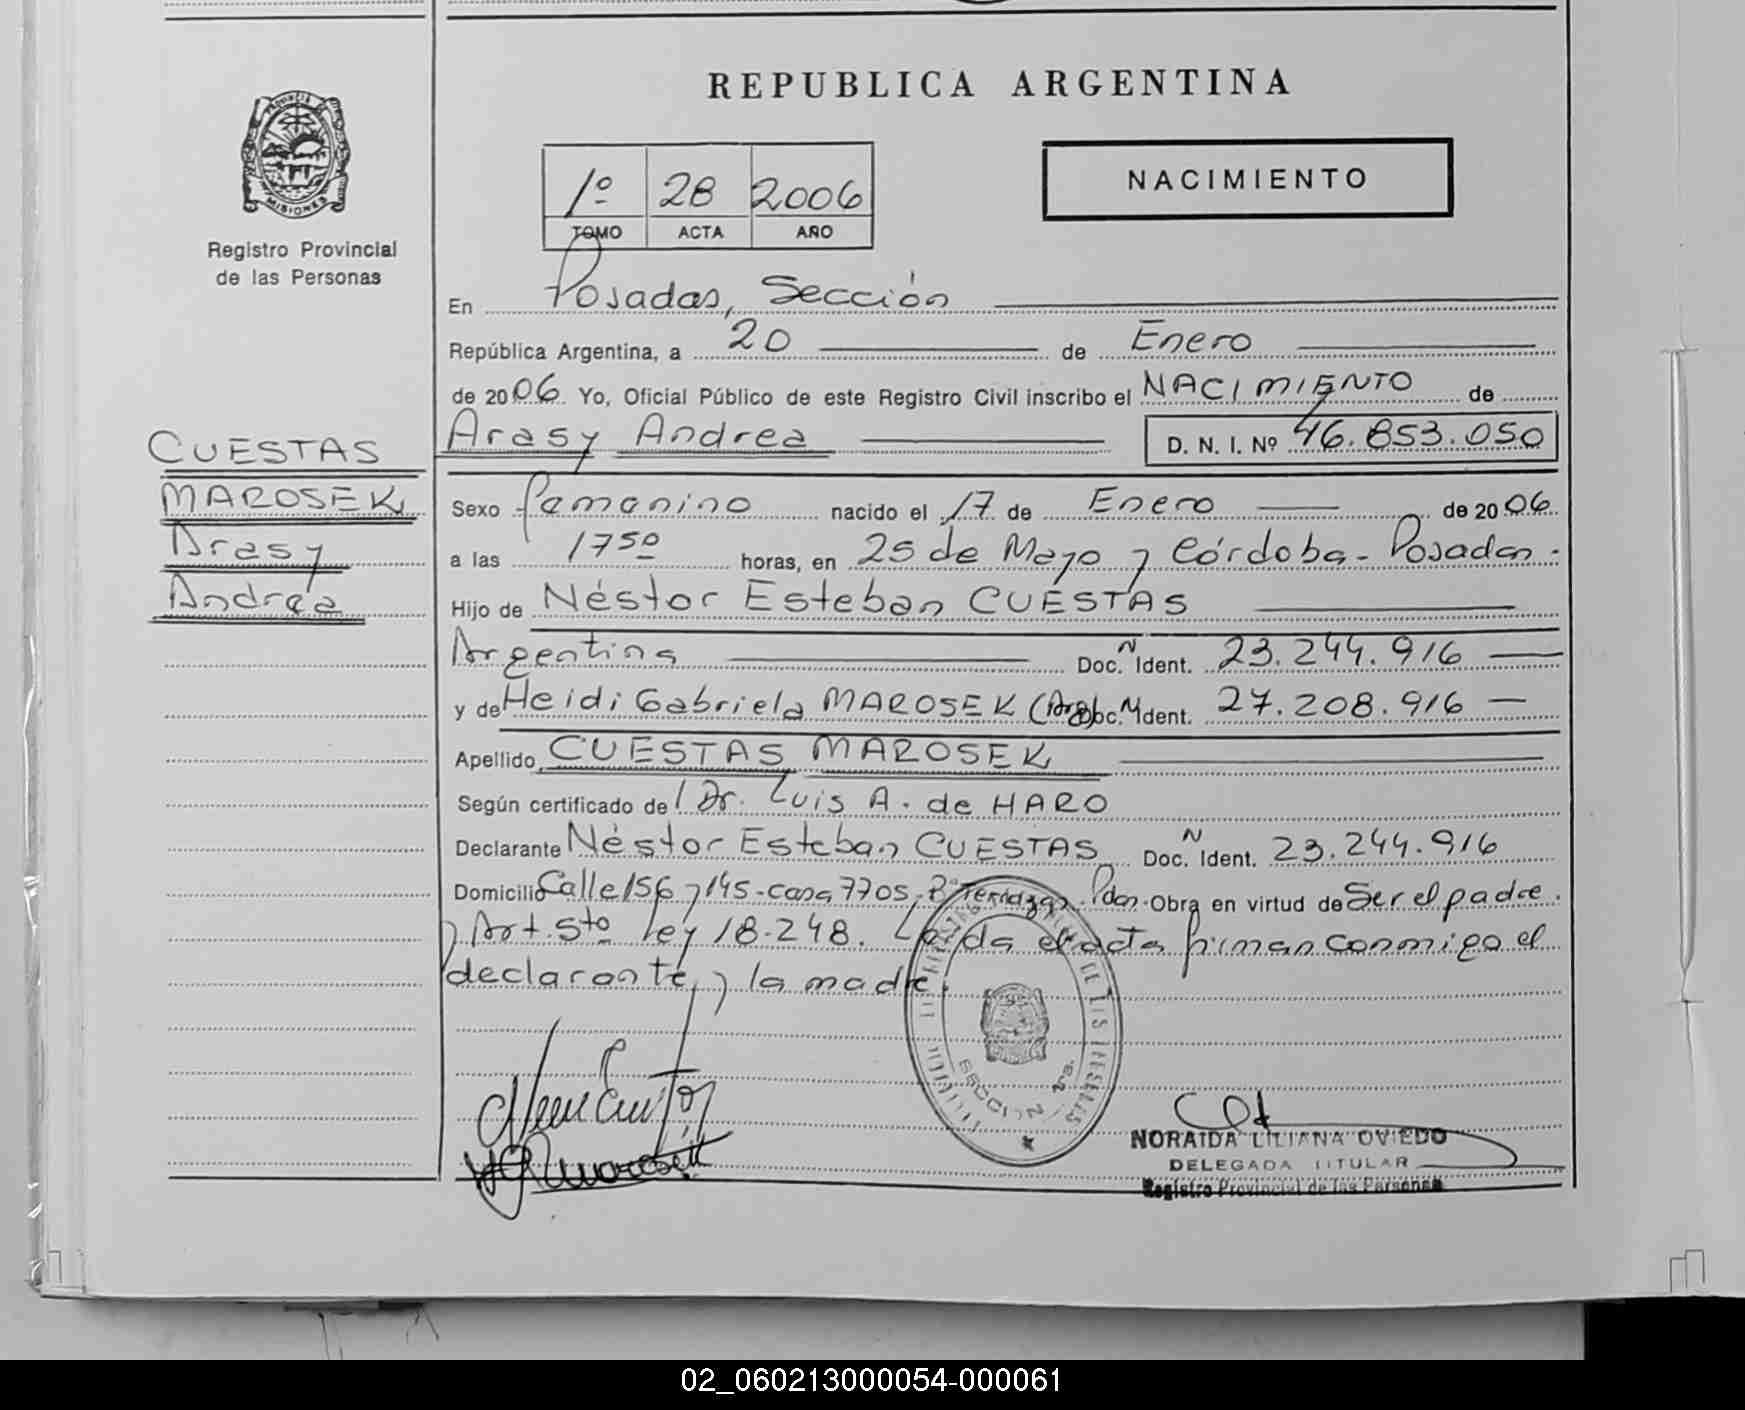 REPUBLICA ARGENTINA
PROVINCIA DE
MISIONES
Registro Provincial
de las Personas
1º 28 2006
TOMO ACTA AÑO
NACIMIENTO
En Posadas, Sección
República Argentina, a 20 de Enero
de 2006. Yo, Oficial Público de este Registro Civil inscribo el NACIMIENTO de
Arasy Andrea D. N. I. Nº 46.853.050
CUESTAS
MAROSEK
Arasy
Andrea
Sexo Femenino nacido el 17 de Enero de 2006.
a las 17⁵⁰ horas, en 25 de Mayo y Córdoba - Posadas.
Hijo de Néstor Esteban CUESTAS
Argentina Doc. N Ident. 23.244.916
y de Heidi Gabriela MAROSEK (Arg) Doc. N Ident. 27.208.916
Apellido CUESTAS MAROSEK
Según certificado del Dr. Luis A. de HARO
Declarante Néstor Esteban CUESTAS Doc. N Ident. 23.244.916
Domicilio Calle 156 y 145 - casa 7705 - Bº Pdas. Obra en virtud de Ser el padre.
y Art. 5to ley 18.248. Leída el acta firman conmigo el
declarante y la madre.
SECCION 1ra.
NORAIDA LILIANA OVIEDO
DELEGADA TITULAR
Registro Provincial de las Personas
02_060213000054-000061